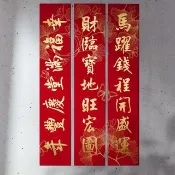 馬躍錢程開盛運
財臨寶地旺宏圖
幸豐慶堂滿福幸